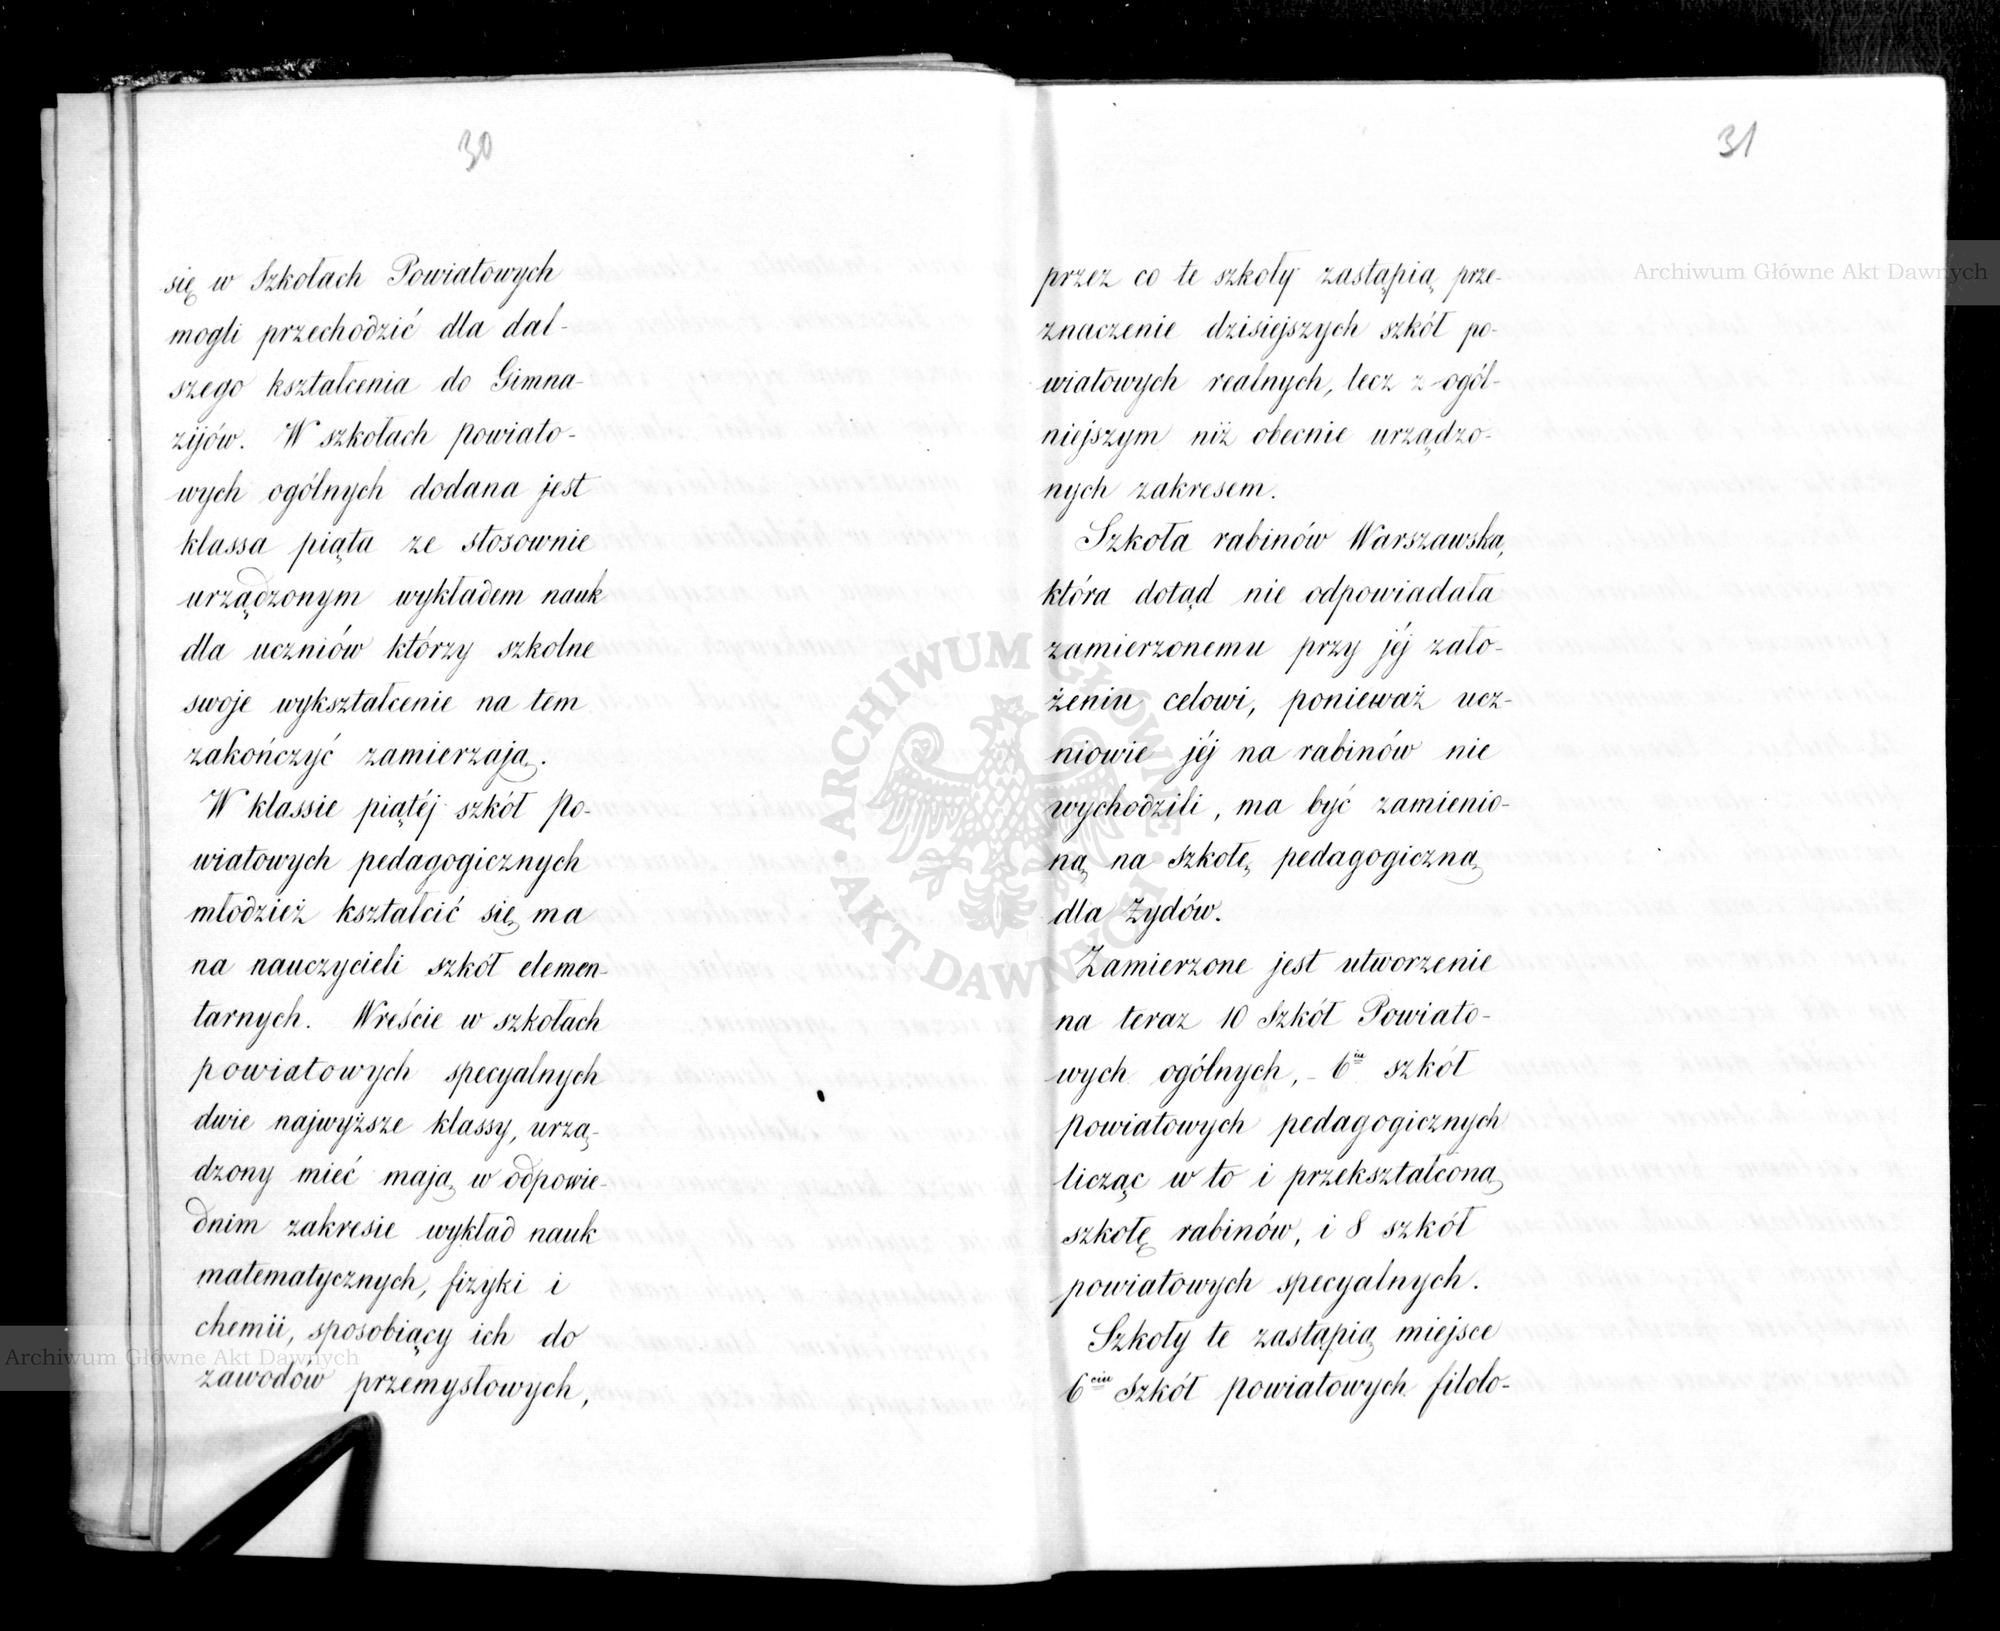 30
się w Szkołach Powiatowych
mogli przechodzić dla dal-
szego kształcenia do Gimna-
zijów. W szkołach powiato-
wych ogólnych dodana jest
klassa piąta ze stosownie
urządzonym wykładem nauk
dla uczniów którzy szkolne
swoje wykształcenie na tem
zakończyć zamierzają.
W klassie piątéj szkół Po-
wiatowych pedagogicznych
młodzież kształcić się ma
na nauczycieli szkół elemen-
tarnych. Wreście w szkołach
powiatowych specyalnych
dwie najwyższe klassy, urzą-
dzony mieć mają w odpowie-
dnim zakresie wykład nauk
matematycznych, fizyki i
chemii, sposobiący ich do
zawodów przemysłowych,
31
przez co te szkoły zastąpią prze-
znaczenie dzisiejszych szkół po-
wiatowych realnych, lecz z ogól-
niejszym niż obecnie urządzo-
nych zakresem.
Szkoła rabinów Warszawska,
która dotąd nie odpowiadała
zamierzonemu przy jéj zało-
żeniu celowi, ponieważ ucz-
niowie jéj na rabinów nie
wychodzili, ma być zamienio-
ną na szkołę pedagogiczną
dla Żydów.
Zamierzone jest utworzenie
na teraz 10 Szkół Powiato-
wych ogólnych, - 6iu szkół
powiatowych pedagogicznych
licząc w to i przekształconą
szkołę rabinów, i 8 szkół
powiatowych specyalnych.
Szkoły te zastąpią miejsce
6ciu Szkół powiatowych filolo-
Archiwum Główne Akt Dawnych
Archiwum Główne Akt Dawnych
ARCHIWUM GŁÓWNE
AKT DAWNYCH